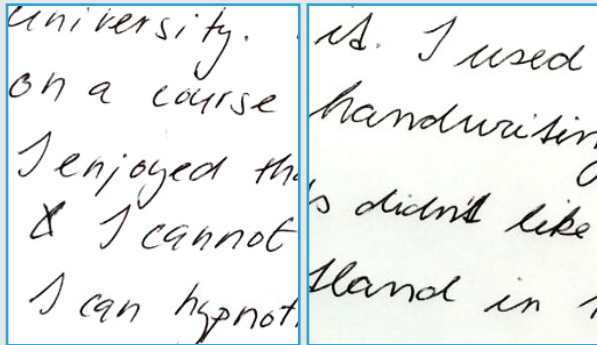 university.
on a course
I enjoyed the
& I cannot
I can hypnot
it. I used
handwritin
s didn't like
tland in